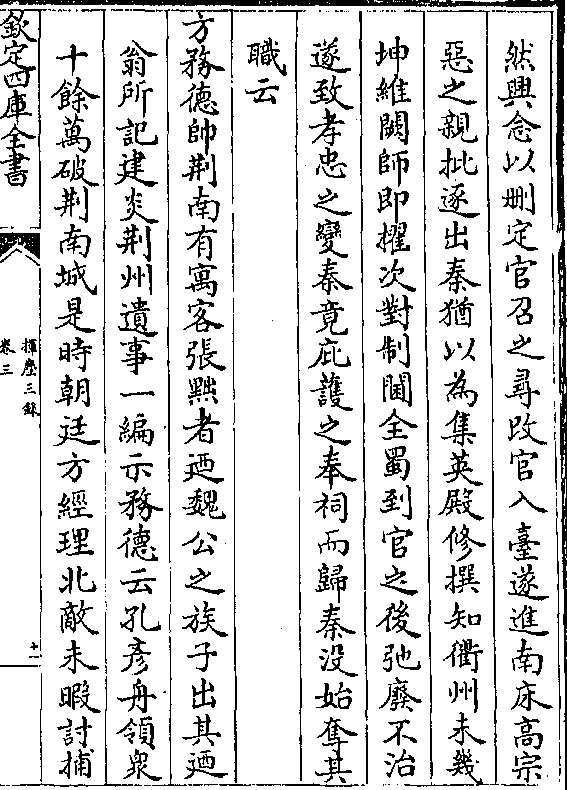 然興念以刪定官召之尋改官入臺遂進南床高宗
惡之親批逐出秦猶以為集英殿修撰知衢州未幾
坤維闕師即擢次對制閫全蜀到官之後弛廢不治
遂致孝忠之變秦竟庇護之奉祠而歸秦没始奪其
職云
方務德帥荆南有寓客張㸃者廼魏公之族子出其廼
翁所記建炎荆州遺事一編示務德云孔彦舟領衆
十餘萬破荆南城是時朝廷方經理北敵未暇討捕
欽定四庫全書
揮麈三錄
卷三
十一